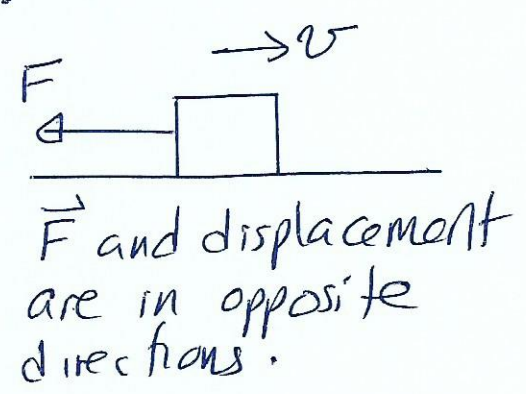 v
F
F and displacement
are in opposite
directions.